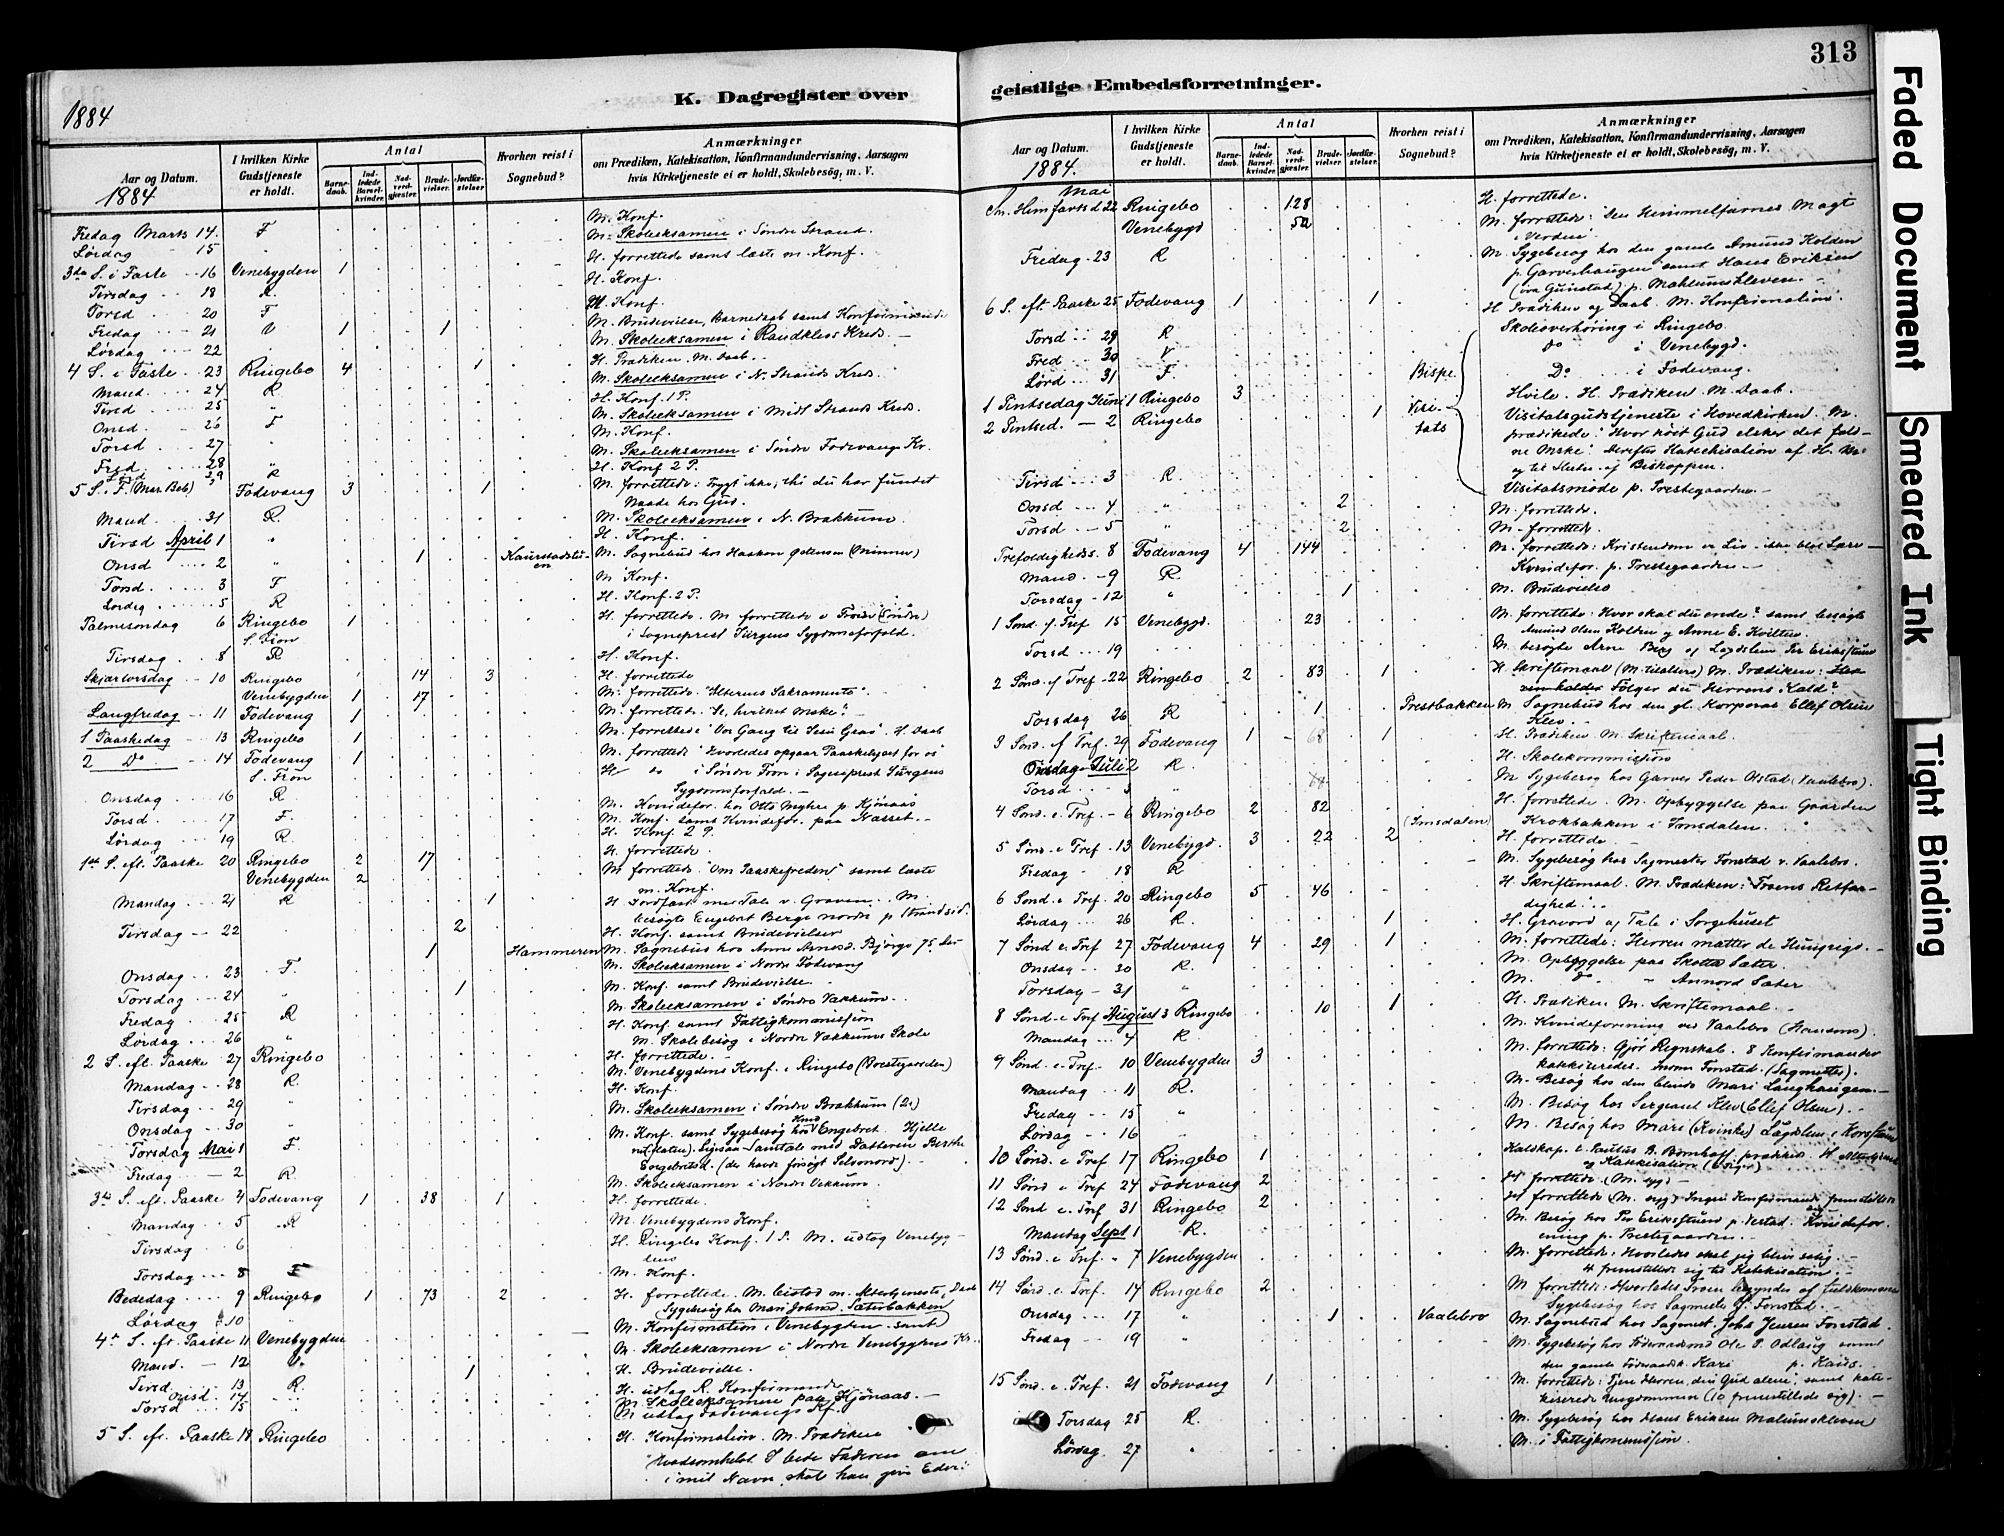 313
K. Dagregister over geistlige Embedsforretninger.
1884
Aar og Datum.
1884
I hvilken Kirke Gudstjeneste er holdt.
Antal
Barnedaab.
Indledede Barselkvinder.
Nadverdgjester.
Brudevielser.
Jordfæstelser.
Hvorhen reist i Sognebud?
Anmærkninger
om Prædiken, Katekisation, Konfirmandundervisning, Aarsagen
hvis Kirketjeneste ei er holdt, Skolebesøg, m. V.
M. Konf.
Fredag Marts 14. F M. Skoleeksamen i Søndre Strand.
Lørdag 15 H. forrettede samt læste m. Konf.
3die S. i Faste 16 Venebygden 1 H. Konf.
Tirsdag 18 R. M. Konf.
Torsd 20 F M. Brudevielse, Barnedaab samt Konfirmander
Fredag 21 V 1 1 M. Skoleeksamen i Randklevs Kreds.
Lørdag 22 H. Prædiken. M. Daab.
4 S. i Faste 23 Ringebo 4 1 M. Skoleeksamen i N. Strands Kreds.
Mand 24 R H. Konf. 1 P.
Tirsd 25 " M. Skoleeksamen i Midt Strands Kreds.
Onsd 26 F M. Konf.
Torsd 27 M. Skoleeksamen i Søndre Fodevangs Kr.
Fred 28 " H. Konf 2 P.
Lörd 29 R
5 S. i F. (Mar. Beb) Fodevang 3 1 M. forrettede: Frygt ikke, thi du har fundet
Naade hos Gud.
Mand 31 R. M. Skoleeksamen i N. Brakkum.
Tirsd April 1 " H. Konf.
Onsd 2 " 1 M. Sognebud hos Haakon
Torsd 3 F M Konf.
Lørdag 5 R H. Konf. 2 P.
Palmesøndag 6 Ringebo 1 H. forrettede. M. forrettede i Fron (Søndre)
S. Fron i Sogneprest Jürgens Sygdomsforfald.
Tirsdag 8 R H. Konf.
Skjærtorsdag 10 Ringebo 14 3 H. forrettede
Venebygden 1 17 M. forrettede "Alterens Sakramente".
Langfredag 11 Fodevang 1 M. forrettede "Se, hvilket Mske".
1 Paaskedag 13 Ringebo 1 M. forrettede "Vor Gang til Jesu Grav". H. Daab
2 Do 14 Fodevang 1 M. forrettede "Hvorledes opgaar Paaskelyset for os"
S. Fron H do i Søndre Fron i Sogneprest Jürgens
Sygdomsforfald.
Onsdag 16 R. M. Kvindefor. hos Otto Myhre p. Kjønaas
Torsd 17 F. M. Konf. samt Kvindefor. paa
Lørdag 19 R. H. Konf. 2 P.
1ste S. eft. Paaske 20 Ringebo 2 17 H. forrettede.
Venebygden 2 M forrettede "Om Paaskefreden" samt læste
m. Konf.
Mandag 21 R 1 H Jordfæst med Tale v. Graven. M.
besøgte Engebret Berge nordre p Strandsid.
Tirsdag 22 2 H. Konf. samt Brudevielser
1 Hammeren M. Sognebud hos Anne
Onsdag 23 F. M. Skoleeksamen i Nordre Fodevang
Torsdag 24 " 1 M. Konf. samt Brudevielse
Fredag 25 R M. Skoleeksamen i Søndre Vækkum.
Lørdag 26 " H. Konf. samt Fattigkommission
M. Skolebesøg i Nordre Vækkums Skole
2 S. eft. Paaske 27 Ringebo H. forrettede.
Mandag 28 R. M. Venebygdens Konf. i Ringebo (Prestegaarden)
Tirsdag 29 " H. Konf.
Onsdag 30 " M. Skoleeksamen i Søndre Brakkum
Torsdag Mai 1 F. M. Konf. samt Sygebesøg hos Engebret Hjelle
Samtale med Datteren Berthe
Fredag 2 R. Engebretsd.
M. Skoleeksamen i Nordre Vekkum.
3die S. eft. Paaske 4 Fodevang 1 38 1 H. forrettede.
Mandag 5 R M. Venebygdens Konf.
Tirsdag 6 H. Ringebo Konf. 1 P. M. udtog Venebyg-
Torsdag 8 F M. Konf.
Bededag 9 Ringebo 1 73 2 H. forrettede. M. bistod m. Altertjeneste, Daab
Lørdag 10 Sygebesøg hos Mari Johnsd. Sæterbakken
4de S. eft. Paaske 11 Venebygden M. Konfirmation i Venebygden samt
Mand. 12 V. M. Skoleeksamen i Nordre Venebygdens Kr.
Tirsd 13 R. 1 H. Brudevielse.
Onsd 14 H. udtog R. Konfirmander
Torsd 15 M. Skoleeksamen paa Kjönaas.
M udtog Fodevangs Kf.
5 S. eft. Paaske 18 Ringebo H. Konfirmation. M. Prædiken
"Hvadsomhelst I bede Faderen om
i mit Navn, skal han give Eder."
Aar og Datum.
1884.
I hvilken Kirke Gudstjeneste er holdt.
Antal
Barnedaab.
Indledede Barselkvinder.
Nadverdgjester.
Brudevielser.
Jordfæstelser.
Hvorhen reist i Sognebud?
Anmærkninger
om Prædiken, Katekisation, Konfirmandundervisning, Aarsagen
hvis Kirketjeneste ei er holdt, Skolebesøg, m. V.
Mai
Himfartsd 22 Ringebo 128 H. forrettede.
Venebygd 52 M. forrettede: "Den Himmelfarnes Magt
i Verden".
Fredag 23 R M. Sygebesøg hos den gamle Amund Kolden
p. Garverhaugen samt Hans Eriksen
p. Mahlumskleven.
6 S. eft. Paaske 25 Fodevang 1 1 H Prædiken og Daab. M. Konfirmation.
Torsd 29 R Skoleoverhøring i Ringebo
Fred 30 V. Do i Venebygd.
Lørd 31 F. Bispe Do i Fodevang.
1 Pintsedag Juni 1 Ringebo 3 Hvile. H. Prædiken. M. Daab.
2 Pintsed. 2 Ringebo 1 Visi-tats Visitatsgudstjeneste i Hovedkirken. M.
prædikede: "Hvor høit Gud elsker det fald-
ne Mske". Derefter Katechisation af H. M.
og til Slutn. af Biskoppen.
Tirsd 3 R. Visitatsmøde p. Prestegaarden.
Onsd 4 " 2 M. forrettede.
Torsd 5 " 2 M. forrettede.
Trefoldigheds. 8 Fodevang 4 144 M. forrettede: Kristendom er Liv - ikke blot Lære
Mand. 9 R. Kvindefor. p. Prestegaarden
Torsdag 12 " 1 M. Brudevielse
1 Sønd. f. Tref 15 Venebygd. 23 M. forrettede: "Hvor skal du ende?" samt besøgte
Amund Olsen Kolden og Anne E. Kvitten.
Torsd 19 M besøgte Arne Berg og Per Erikstuen
2 Sønd. f Tref 22 Ringebo 2 83 1 H. Skriftemaal M. Prædiken:
Følger du Herrens Kald?
Torsdag 26 R 1 Prestbakken M. Sognebud hos den gl. Korporal Ellef Olsen
Klev.
3 Sönd. f Tref. 29 Fodevang 1 68 1 H. Prædiken M. Skriftemaal.
Onsdag Juli 2 R. H. Skolekommission
Torsd 3 " M Sygebesøg hos Garver Peder Olstad (Vaalebro).
4 Sond. e. Tref. 6 Ringebo 2 82 H. forrettede. M. Opbyggelse paa Gaarden
(Imsdalen) Krokbakken i Imsdalen.
5 Sønd e Tref 13 Venebygd. 3 22 2 H. forrettede
Fredag 18 R M. Sygebesøg hos Sagmester Fonstad v. Vaalebro.
6 Sond. e Tref 20 Ringebo 5 46 H. Skriftemaal. M. Prædiken: "Troens Retfær-
dighed".
Lørdag 26 R. 1 H. Gravord og Tale i Sørgehuset
7 Sønd e Tref 27 Fodevang 4 29 1 M. forrettede: Herren mætter de Hungrige.
Onsdag 30 R. M. Opbyggelse paa Skotte Sæter.
Torsdag 31 " M. Do " Annord Sæter
8 Sønd. e Tref August 3 Ringebo 10 1 H. Prædiken M. Skriftemaal.
Mandag 4 R M. Kvindeforening ved Vaalebro (Hansens).
9 Sønd. e Tref. 10 Venebygden 3 M. forrettede: Gjør Regnskab. 8 Konfirmander
katekiseredes. Innom Fonstad. (Sagmester).
Mandag 11 R. M. Besøg hos den blinde Mari Langhaugen.
Fredag 15 " M. Besøg hos Sergeant Klev (Ellef Olsen).
Lørdag 16 " M. Besøg hos Mari
10 Sønd. e Tref 17 Ringebo 1 prædiked. H. Altertjeneste
og Katekisation
11 Sønd e Tref 24 Fodevang 2 H forrettede (M. syg)
12 Sønd e. Tref 31 Ringebo 2 H forrettede (M. syg) Ingen Konfirmander fremstillede
Mandag Sept 1 R. M. Besøg hos Per Erikstuen p. Kvindefor-
ening p. Prestegaarden.
13 Sønd. e Tref 7 Venebygden M. forrettede: Hvorledes skal jeg blive salig.
4 fremstillede sig til Katekisation.
14 Sønd. e Tref. 14 Ringebo 2 M forrettede: Hvorledes Troen begyndes og fuldkommes
Sygebesøg hos Sagmester J. Fonstad.
Onsdag 17 " 1 Vaalebro M. Sognebud hos Sagmest. Johs Jensen Fonstad.
Fredag 19 " M. Sygebesøg hos Føderaadsmd Ole P. Odlaug samt
den gamle Kari p. Kaus.
15 Sønd. e. Tref. 21 Fodevang 1 M. forrettede: "Tjen Herren, din Gud alene", samt kate-
kiserede Ungdommen (10 fremstillede sig).
Torsdag 25 R. M. Sygebesøg hos Hans Eriksen Malumskleven
Lørdag 27 " M. i Fattigkommission.
Faded Document
Smeared Ink
Tight Binding